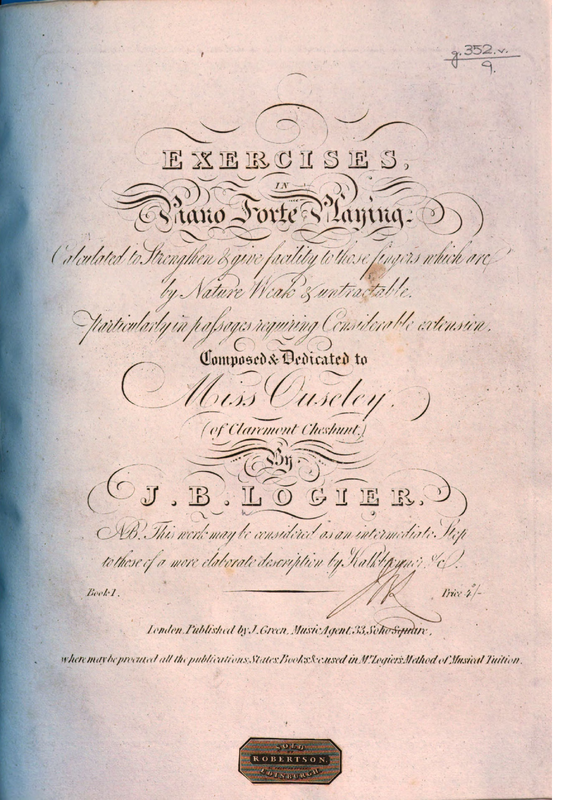 g.352.v.
9.
EXERCISES,
IN
Piano Forte Playing.
Calculated to Strengthen & give facility to those fingers which are
by Nature Weak & untractable.
particularly in passages requiring Considerable extension.
Composed & Dedicated to
Miss Ouseley.
(of Claremont Cheshunt.)
By
J. B. LOGIER.
NB. This work may be considered as an intermediate Step
to those of a more elaborate description by Kalkbrenner &c.
Book 1. Price 4/-
London, Published by J. Green, Music Agent, 33, Soho Square,
where may be procured all the publications, Slates, Books &c used in Mr. Logier's Method of Musical Tuition.
SOLD
BY
ROBERTSON,
EDINBURGH.